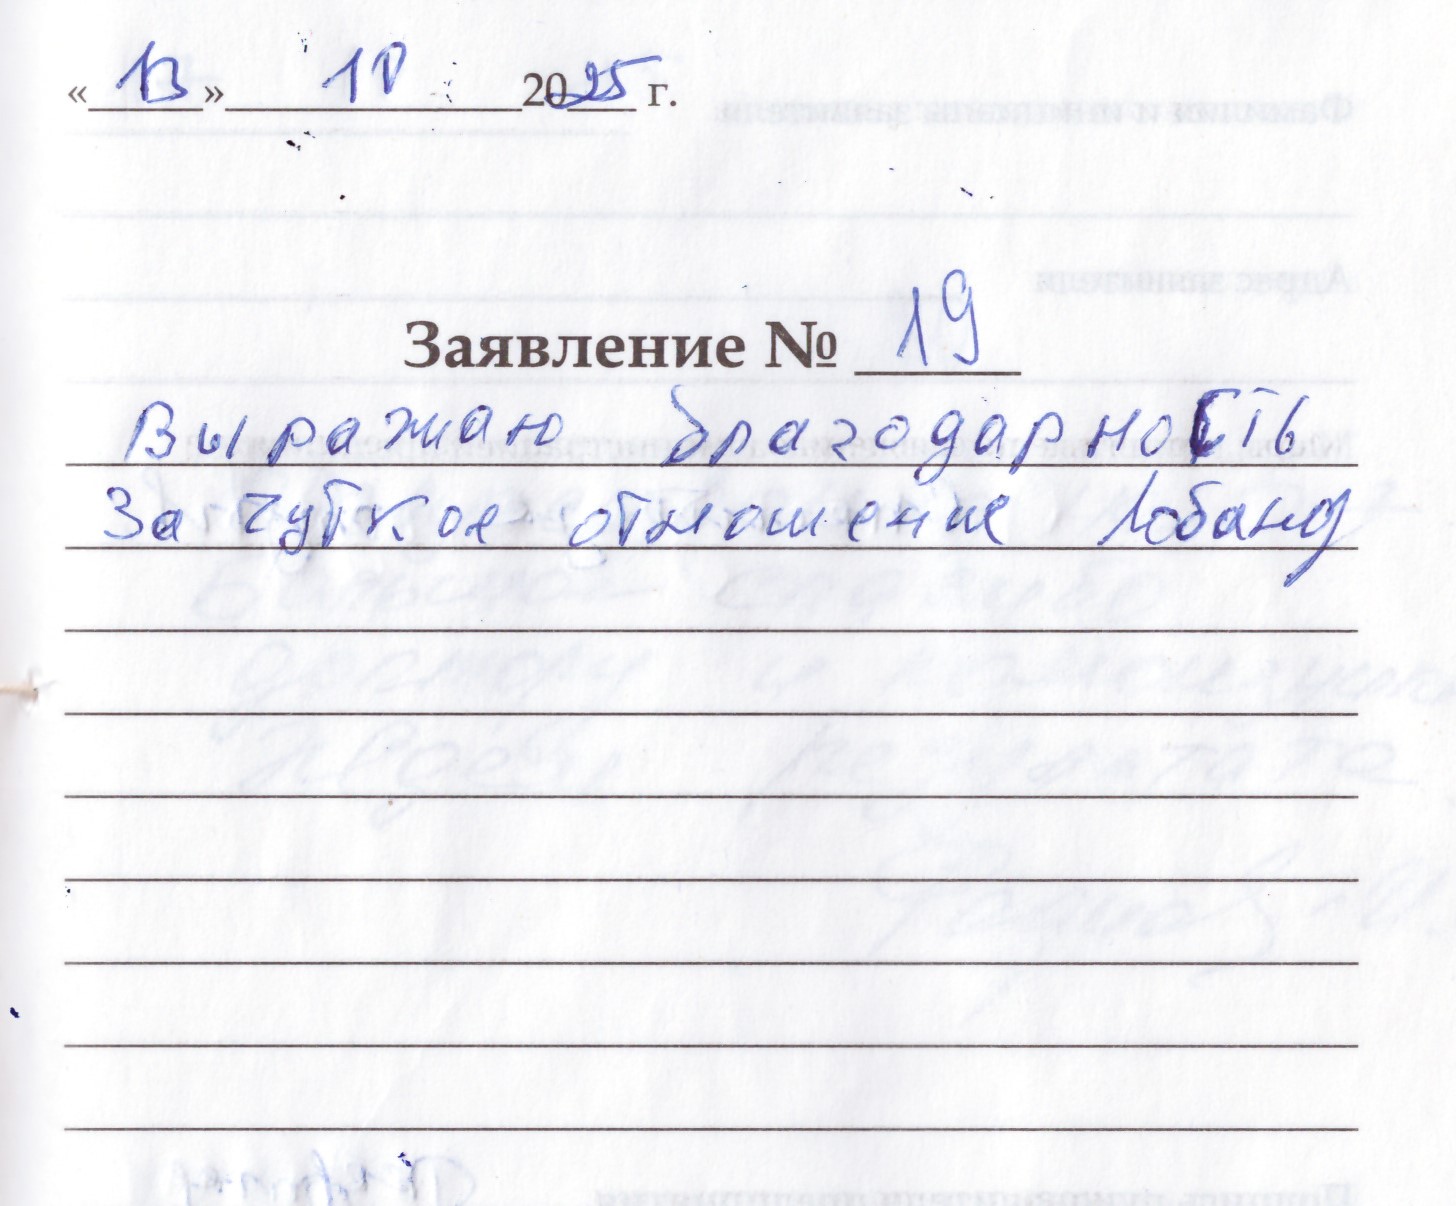 «13» 10 2025 г.
Заявление № 19
Выражаю благодарность
За чуткое отношение Лобану